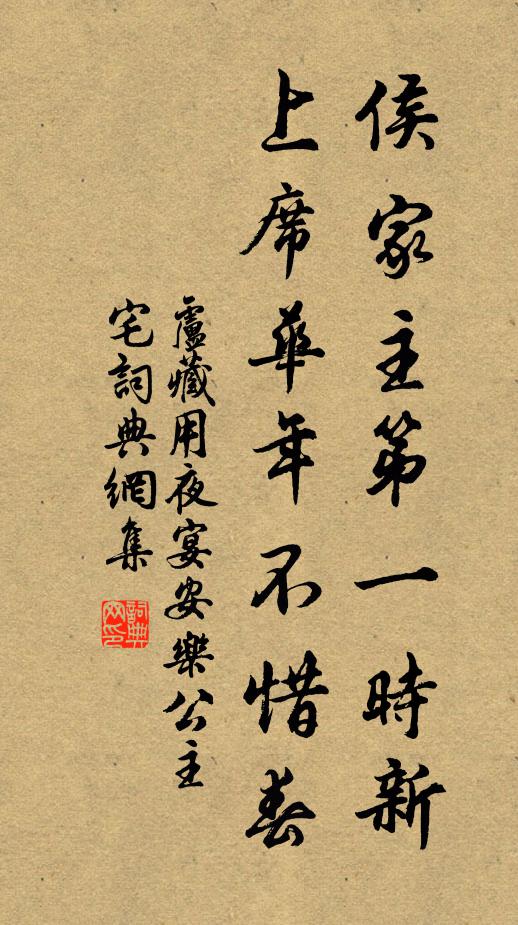 侯家主第一時新
上席華年不惜春
盧藏用夜宴安樂公主
宅詞典網集
詞典
网印